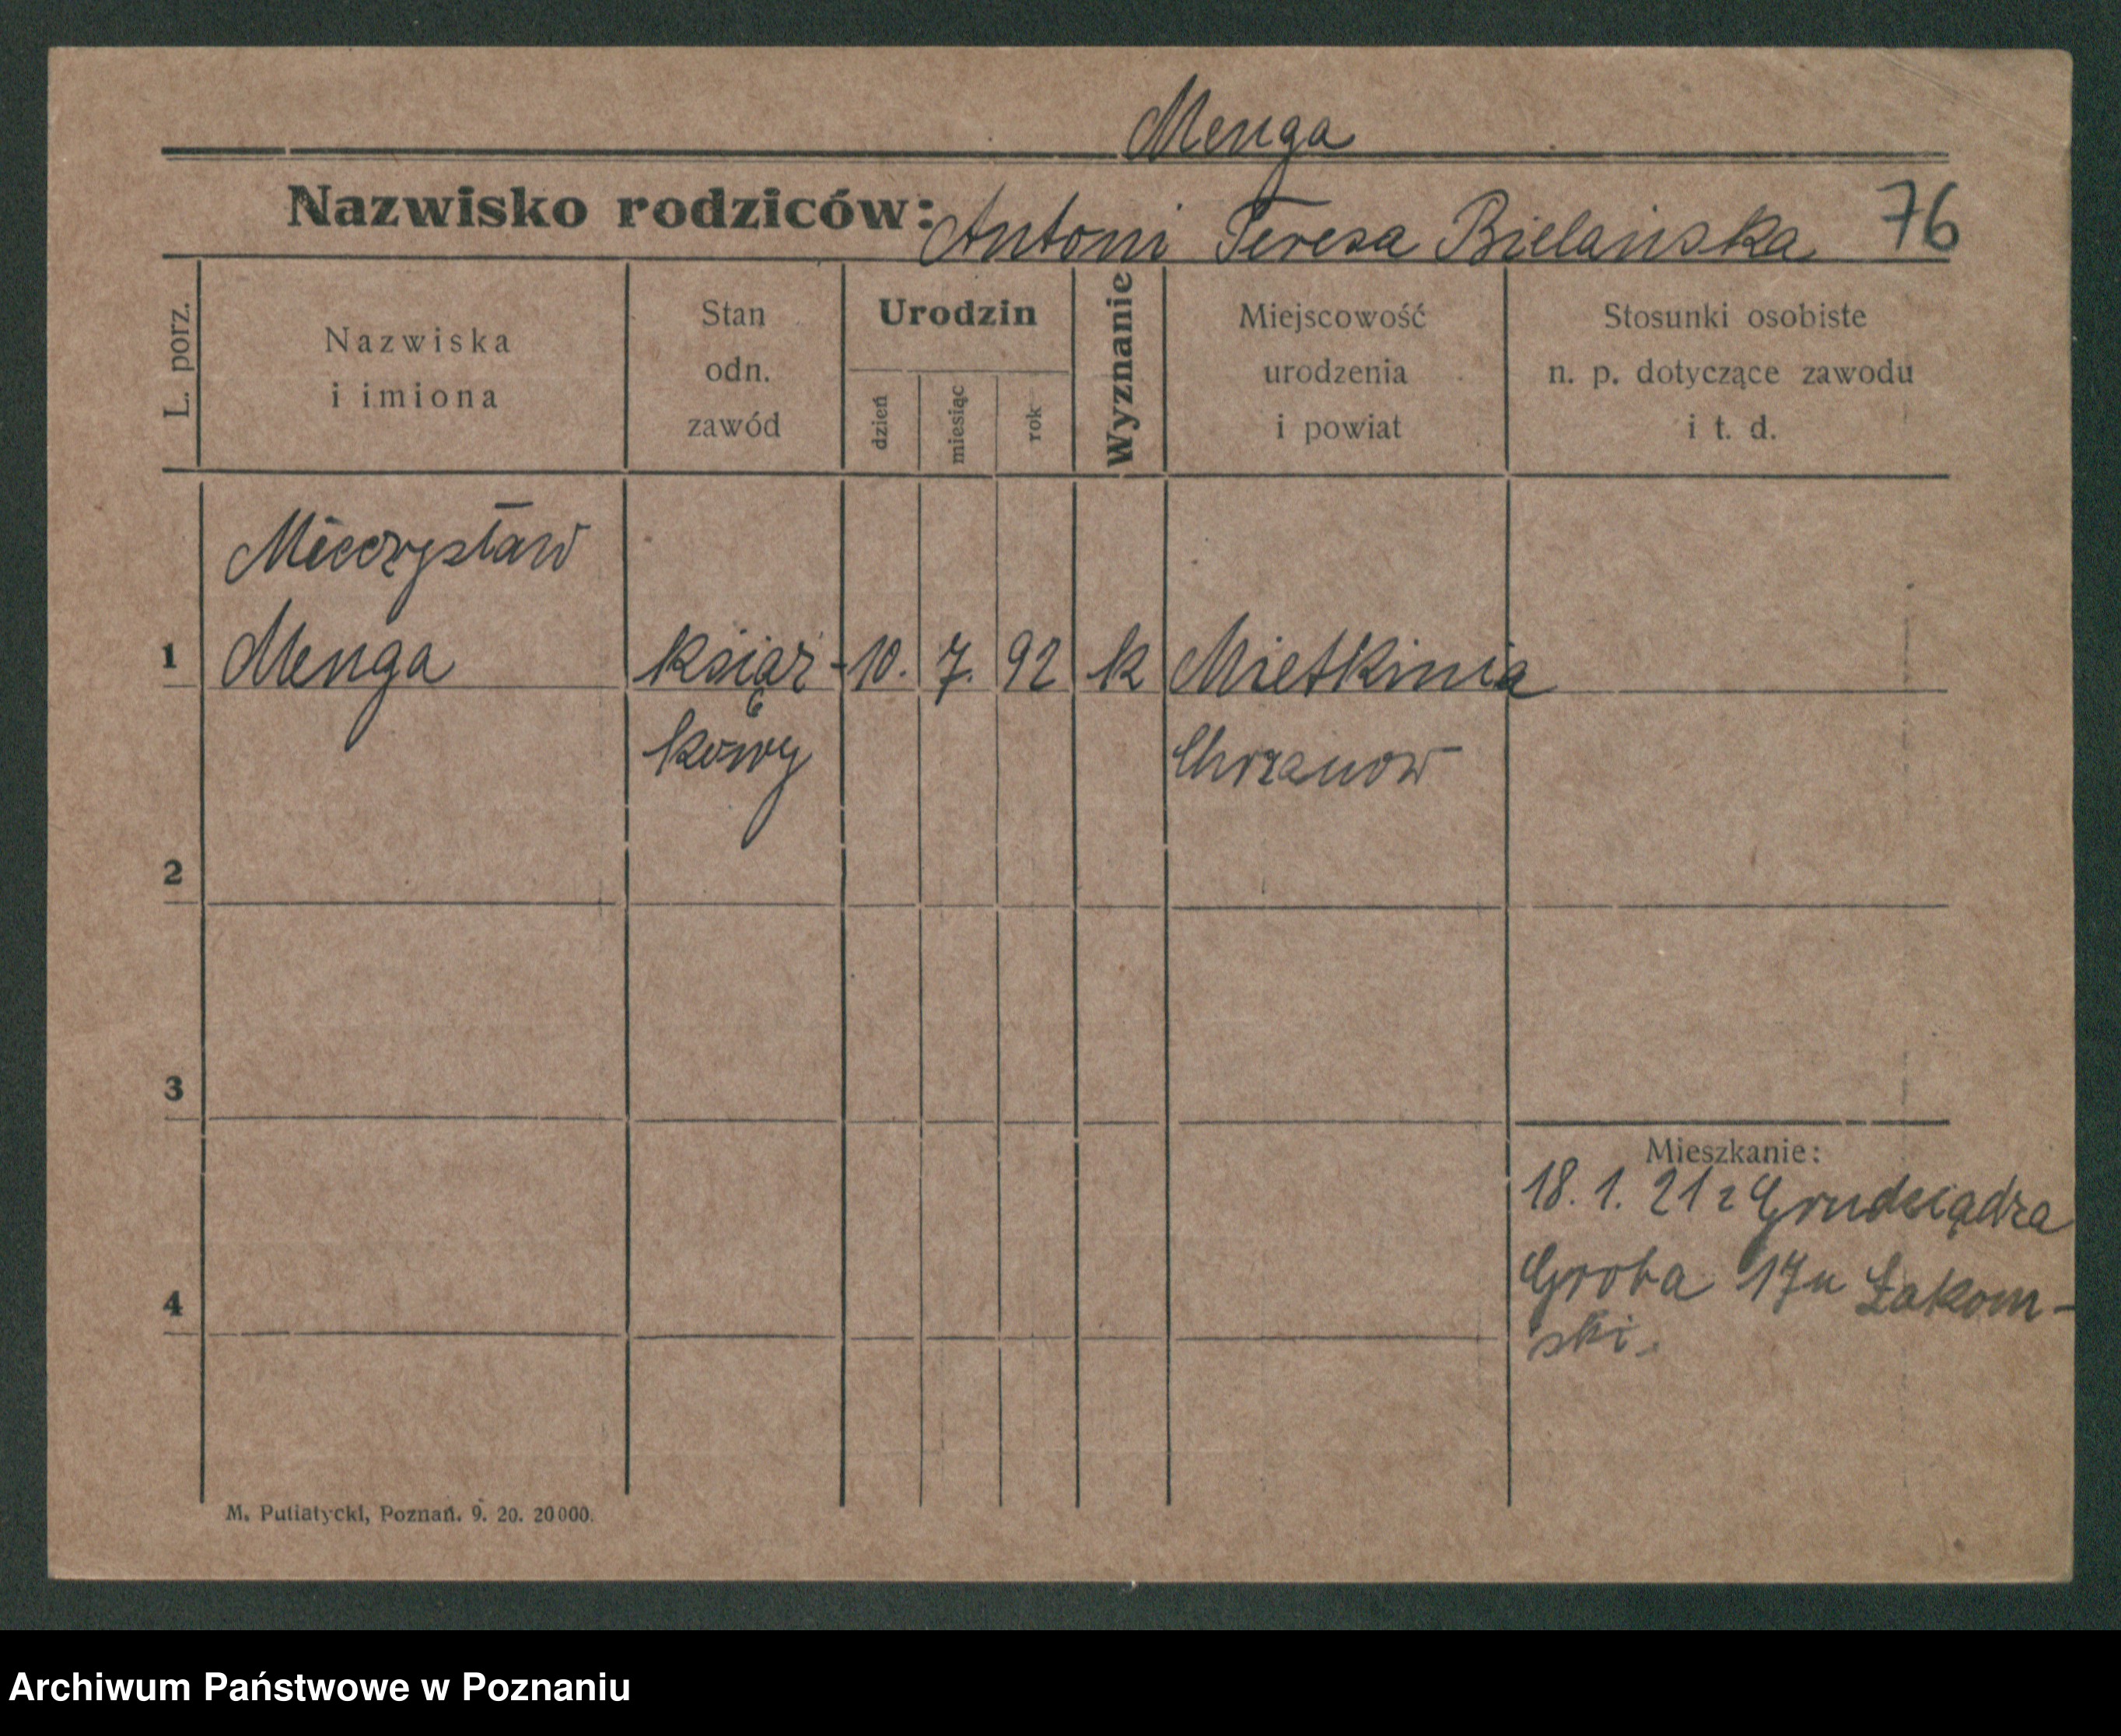 Menga
Nazwisko rodziców: Antoni Teresa Bielańska 76
L. porz.
Nazwiska
i imiona
Stan
odn.
zawód
Urodzin
dzień
miesiąc
rok
Wyznanie
Miejscowość
urodzenia
i powiat
Stosunki osobiste
n. p. dotyczące zawodu
i t. d.
Mieczysław
1 Menga książ- 10. 7. 92 k Mietkinia
kowy Chrzanow
2
3
Mieszkanie:
18. 1. 21 z Grudziądza
Grobla 17 u Łakom-
4
ski.
M. Putiatycki, Poznań. 9. 20. 20000.
Archiwum Państwowe w Poznaniu